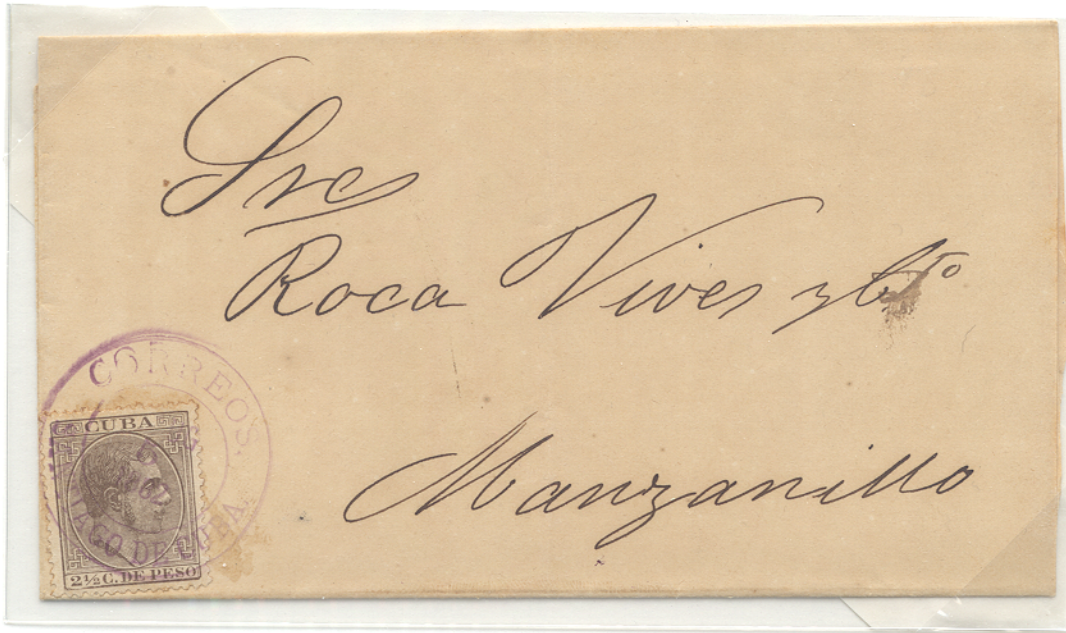 Sres
Roca Vives y Cº
Manzanillo
CORREOS.
CUBA
2½ C. DE PESO